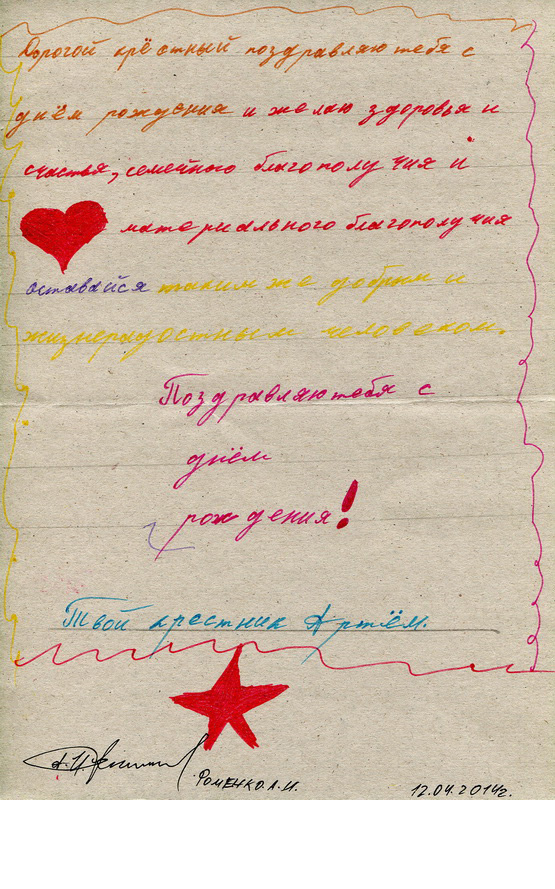 Дорогой крёстный поздравляю тебя с
днём рождения и желаю здоровья и
счастья, семейного благополучия и
материального благополучия
оставайся таким же добрым и
жизнерадостным человеком.
Поздравляю тебя с
днём
рождения!
Твой крестник Артём.
Фоменко А.И.
12.04.2014г.